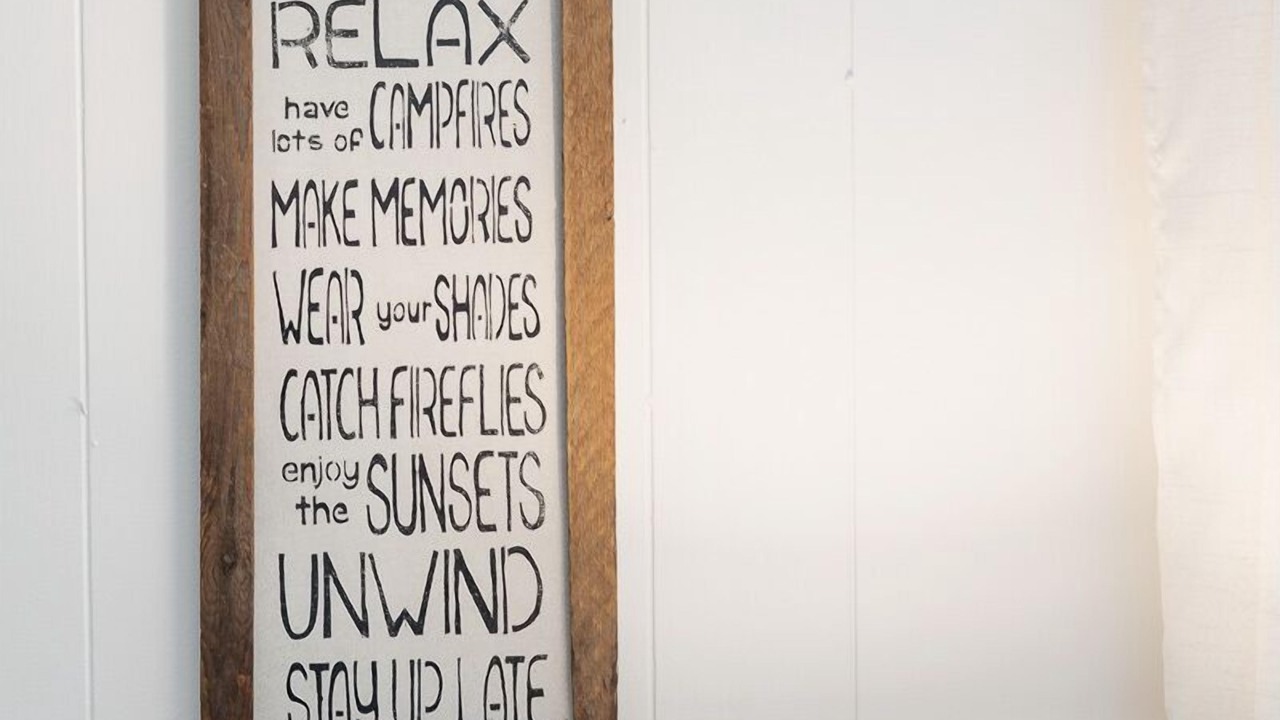 RELAX
have
lots of CAMPFIRES
MAKE MEMORIES
WEAR your SHADES
CATCH FIREFLIES
enjoy
the SUNSETS
UNWIND
STAY UP LATE